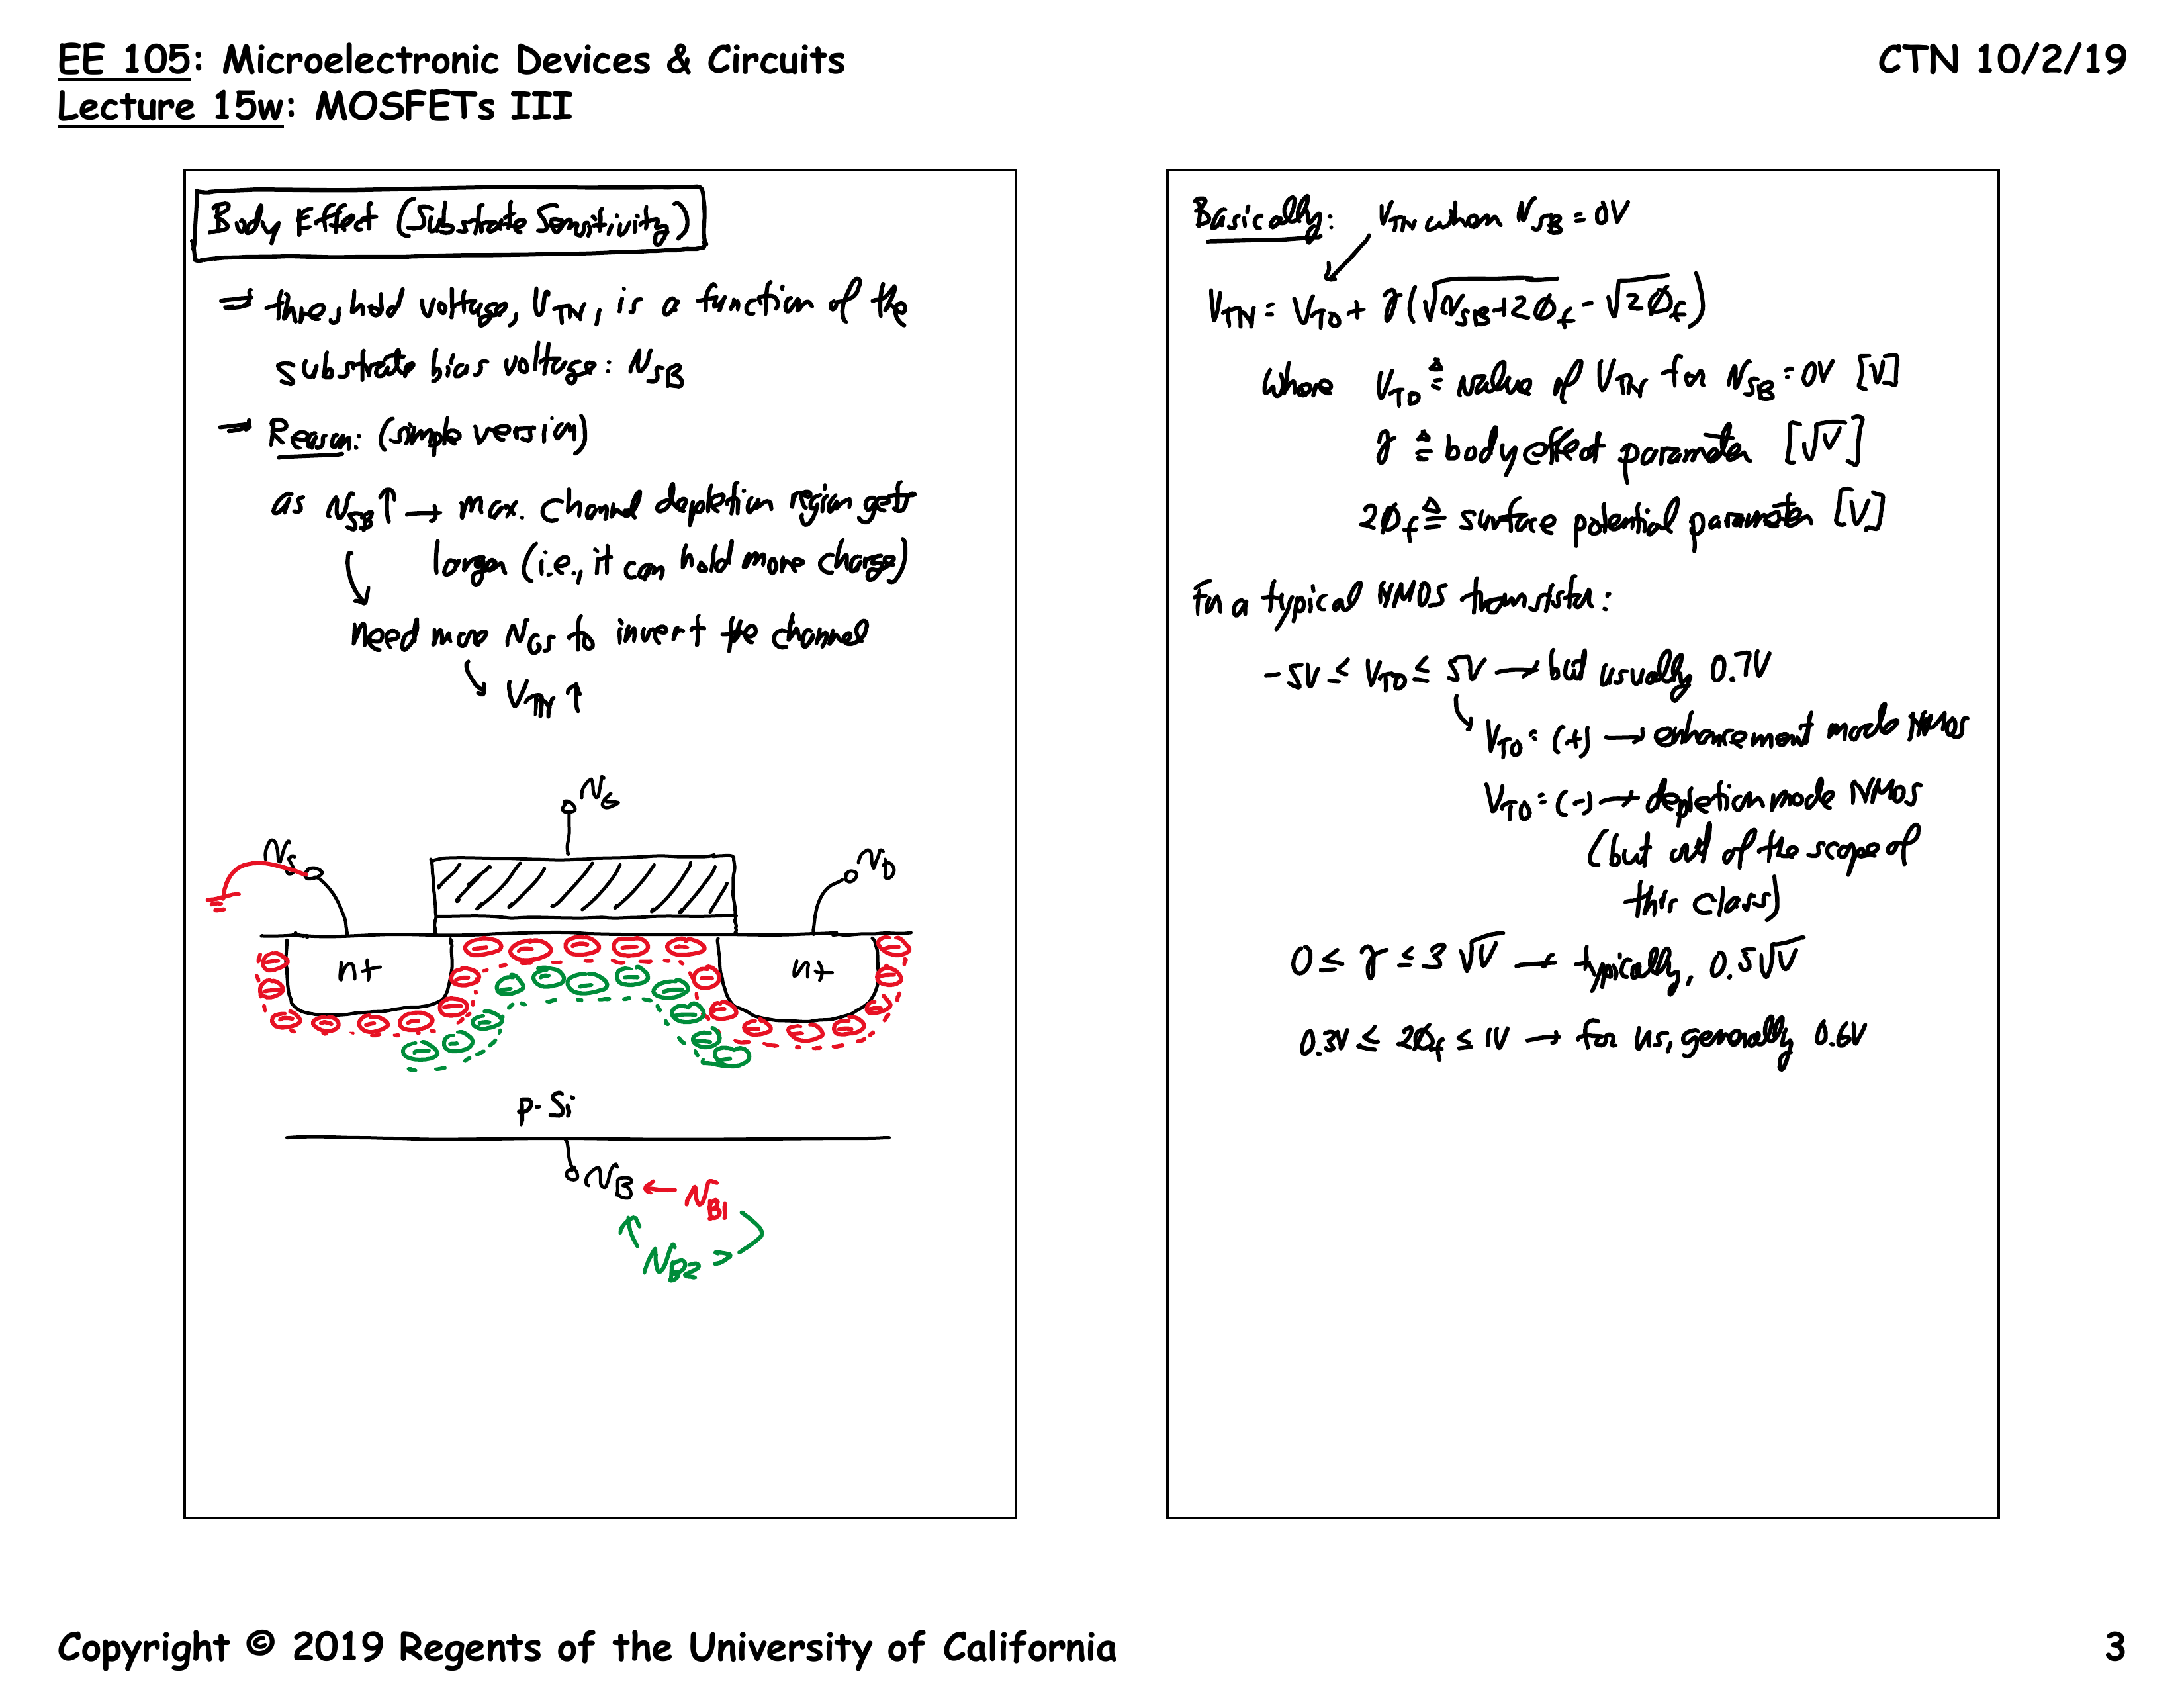 EE 105: Microelectronic Devices & Circuits
CTN 10/2/19
Lecture 15w: MOSFETs III
Body Effect (Substrate Sensitivity)
⇒ threshold voltage, V_TN, is a function of the
substrate bias voltage: v_SB
⇒ Reason: (simple version)
as v_SB ↑ → max. channel depletion region gets
larger (i.e., it can hold more charge)
Need more v_GS to invert the channel
V_TN ↑
v_G
v_S
v_D
n+
n+
p-Si
v_B ← v_B1
v_B2 >
Basically: V_TN when v_SB = 0V
V_TN = V_TO + γ(√(v_SB+2φ_f) - √(2φ_f))
where V_TO ≜ value of V_TN for v_SB = 0V [V]
γ ≜ body effect parameter [√V]
2φ_f ≜ surface potential parameter [V]
For a typical NMOS transistor:
-5V ≤ V_TO ≤ 5V → but usually 0.7V
V_TO = (+) → enhancement mode NMOS
V_TO = (-) → depletion mode NMOS
(but out of the scope of
this class)
0 ≤ γ ≤ 3 √V → typically, 0.5√V
0.3V ≤ 2φ_f ≤ 1V → for us, generally 0.6V
Copyright © 2019 Regents of the University of California
3